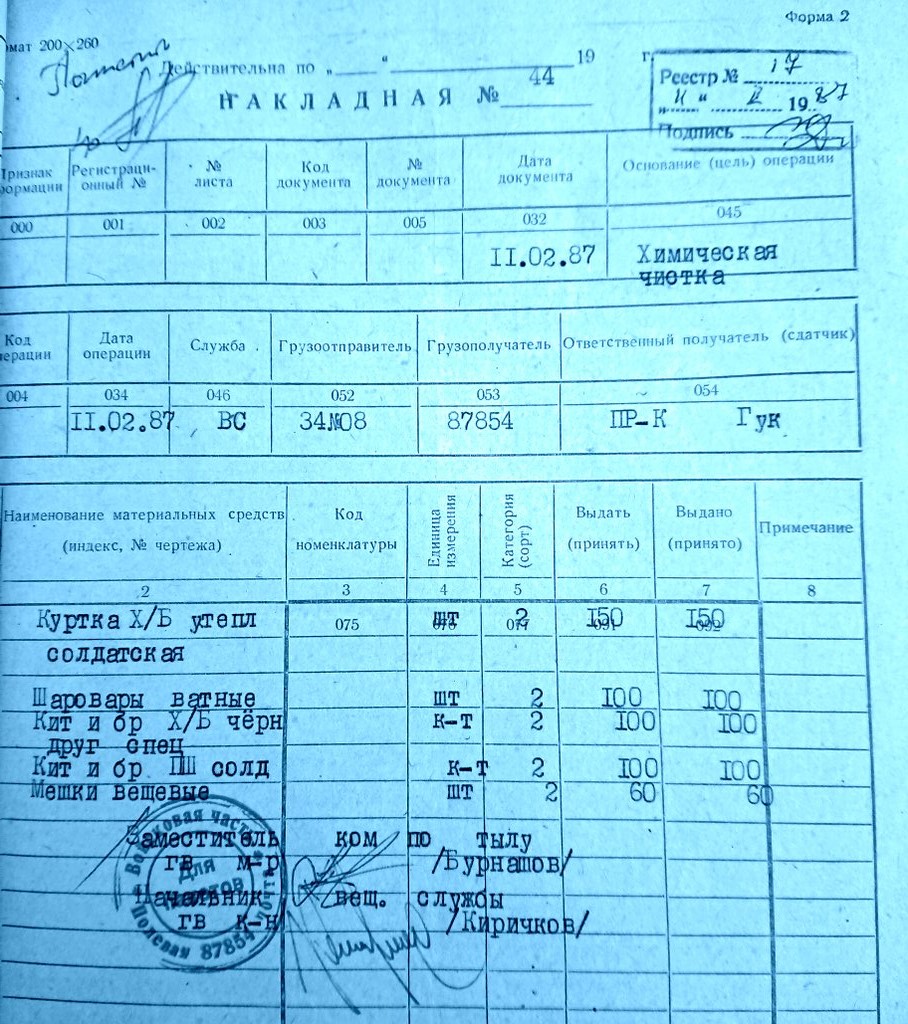 Форма 2
мат 200×260
Действительна по „ “ 19 г.
НАКЛАДНАЯ № 44
Реестр № 17
„11“ 2 1987
Подпись
Признак формации
Регистраци-онный №
№ листа
Код документа
№ документа
Дата документа
Основание (цель) операции
000 001 002 003 005 032 045
II.02.87 Химическая
чистка
Код операции
Дата операции
Служба
Грузоотправитель
Грузополучатель
Ответственный получатель (сдатчик)
004 034 046 052 053 054
II.02.87 ВС 34№08 87854 ПР-К Гук
Наименование материальных средств (индекс, № чертежа)
Код номенклатуры
Единица измерения
Категория (сорт)
Выдать (принять)
Выдано (принято)
Примечание
2 3 4 5 6 7 8
075 076 077 091 092
Куртка Х/Б утепл шт 2 I50 I50
солдатская
Шаровары ватные шт 2 I00 I00
Кит и бр Х/Б чёрн к-т 2 I00 I00
друг спец
Кит и бр ПШ солд к-т 2 I00 I00
Мешки вещевые шт 2 60 60
Заместитель ком по тылу
гв м-р /Бурнашов/
Начальник вещ. службы
гв к-н /Киричков/
Войсковая часть
Полевая почта 87854
Для